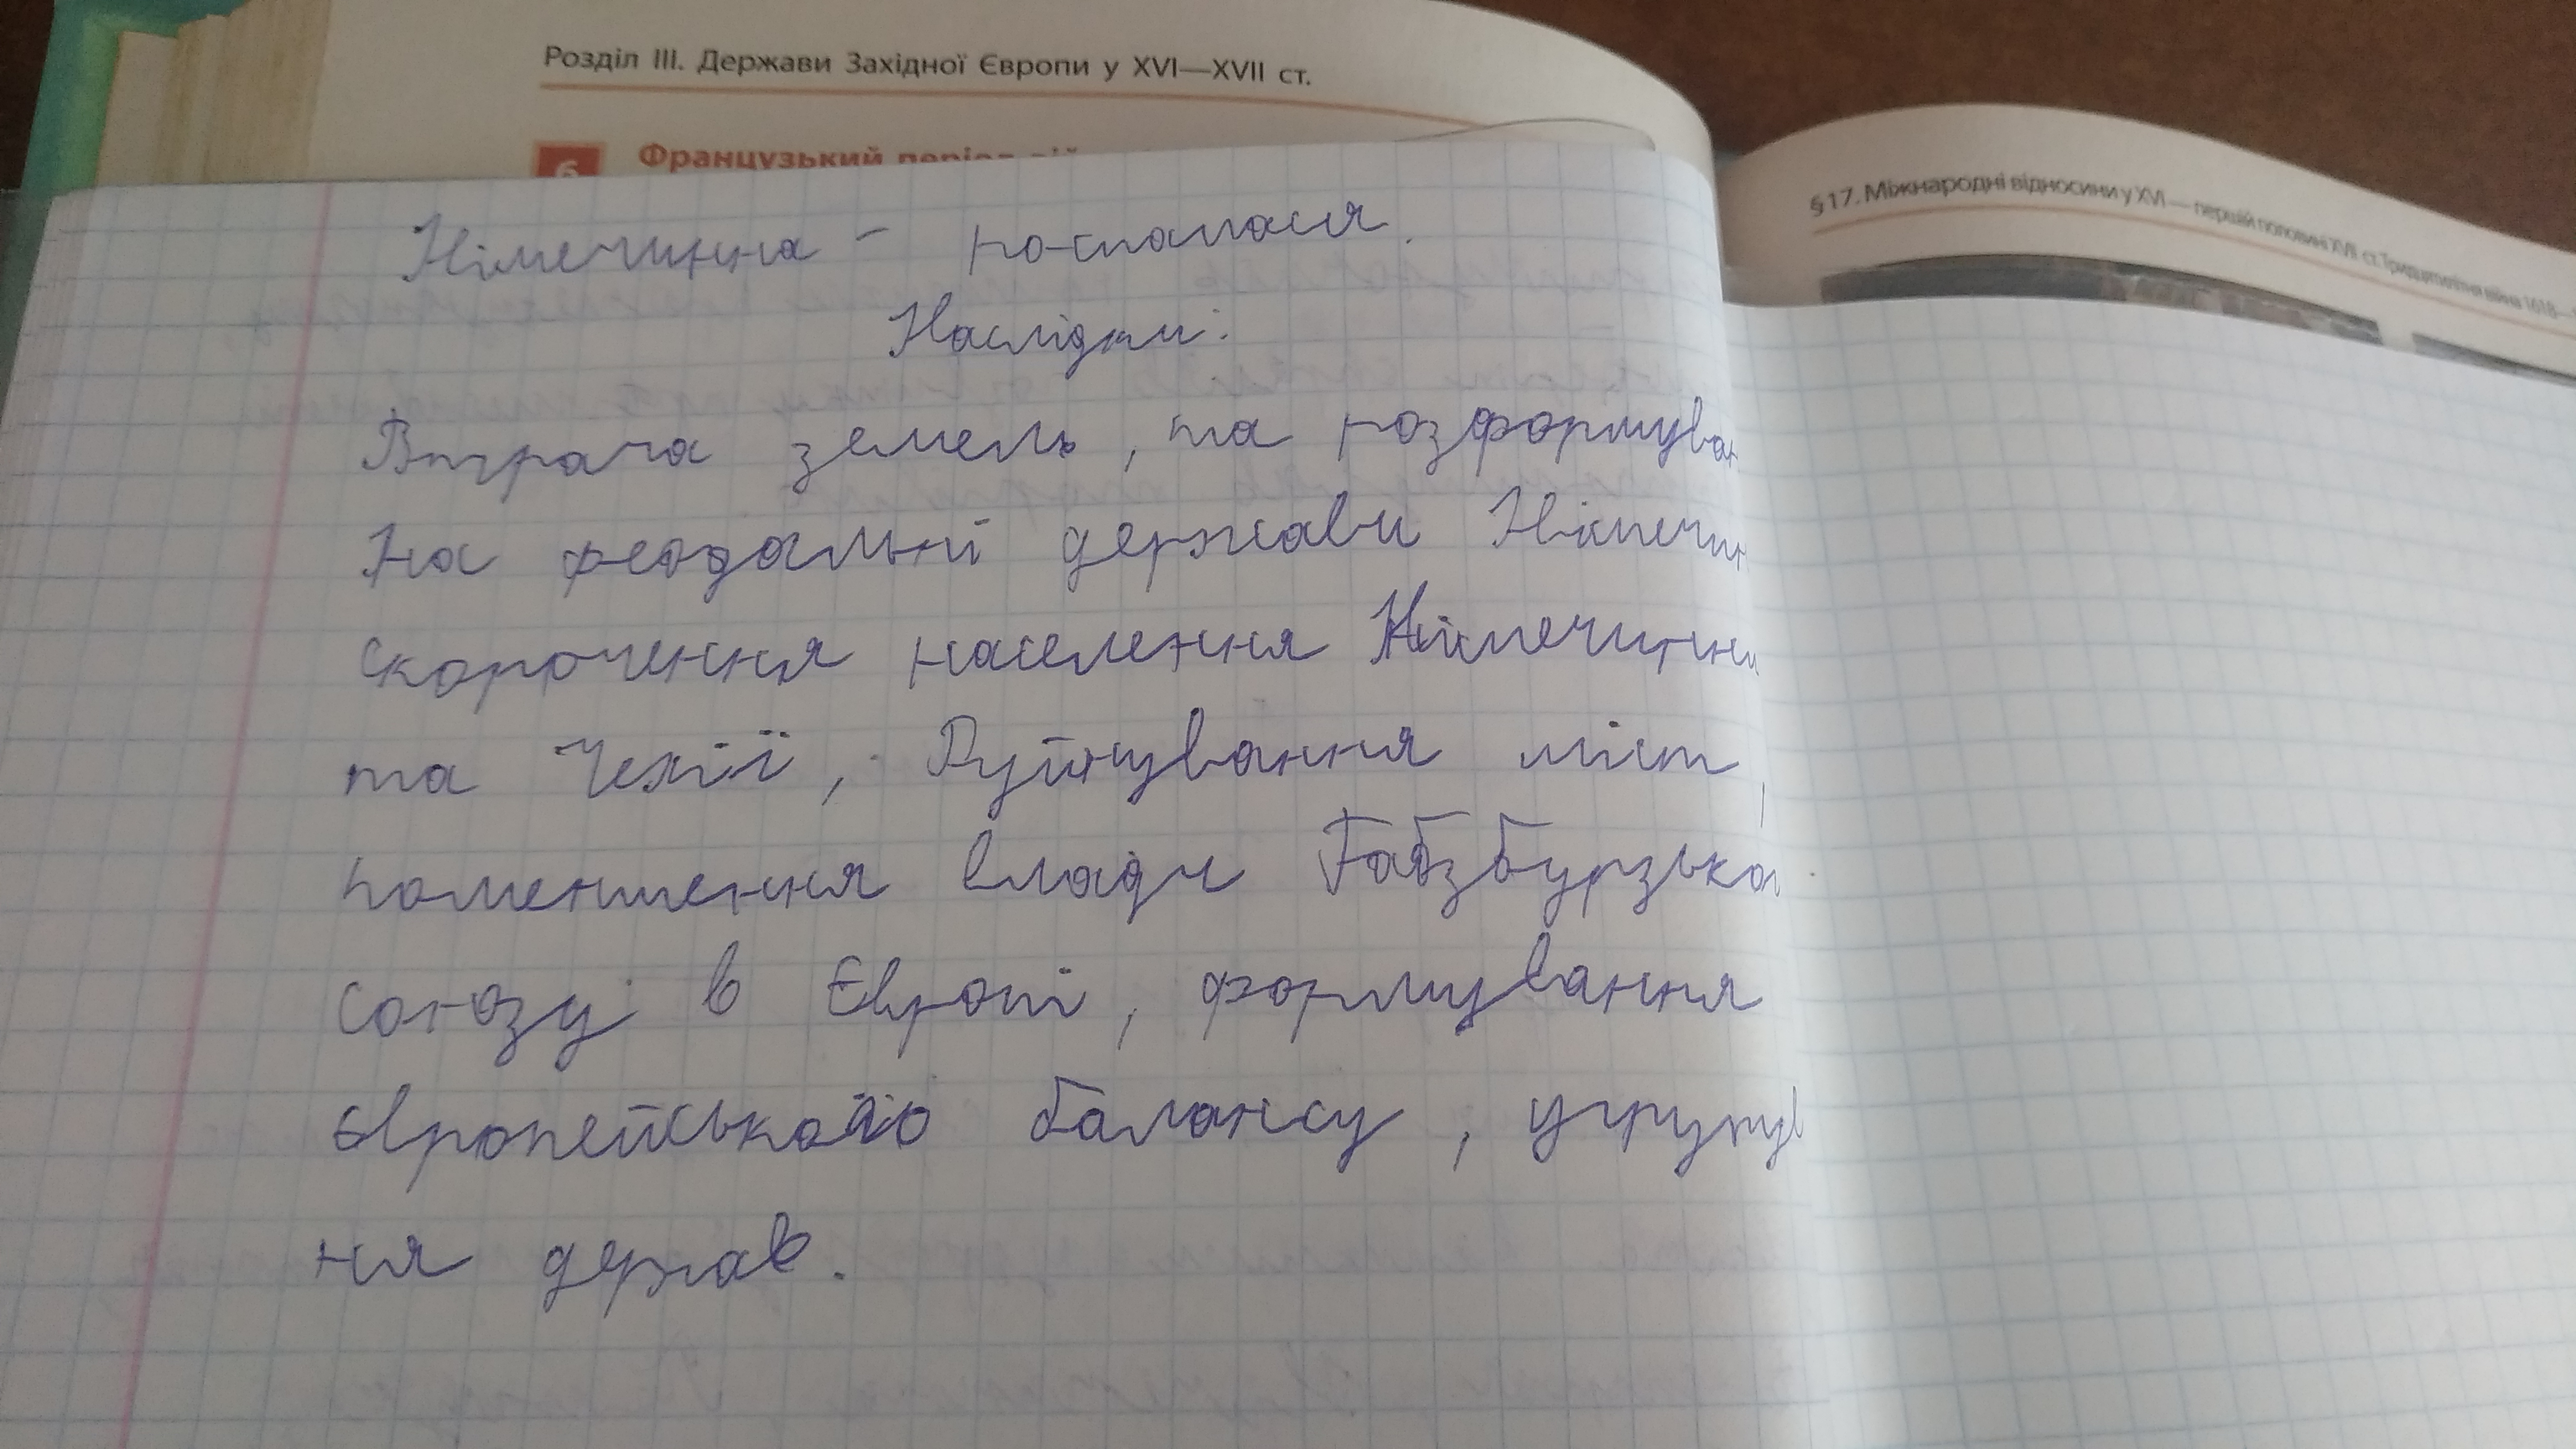 Розділ III. Держави Західної Європи у XVI—XVII ст.
6 Французький період
§17. Міжнародні відносини у XVI — першій половині XVII ст. Тридцятилітня війна 1618—
Німечинна - розпалася.
Наслідки:
Втрача земель, та розформуван
На феодальні держави Німечин
скорочення населення Німечинни
та Чехії, Руйнування міст,
поменшення влади Габзбурзько
союзу в Європі, формування
європейського балансу, угрупув
ня держав.